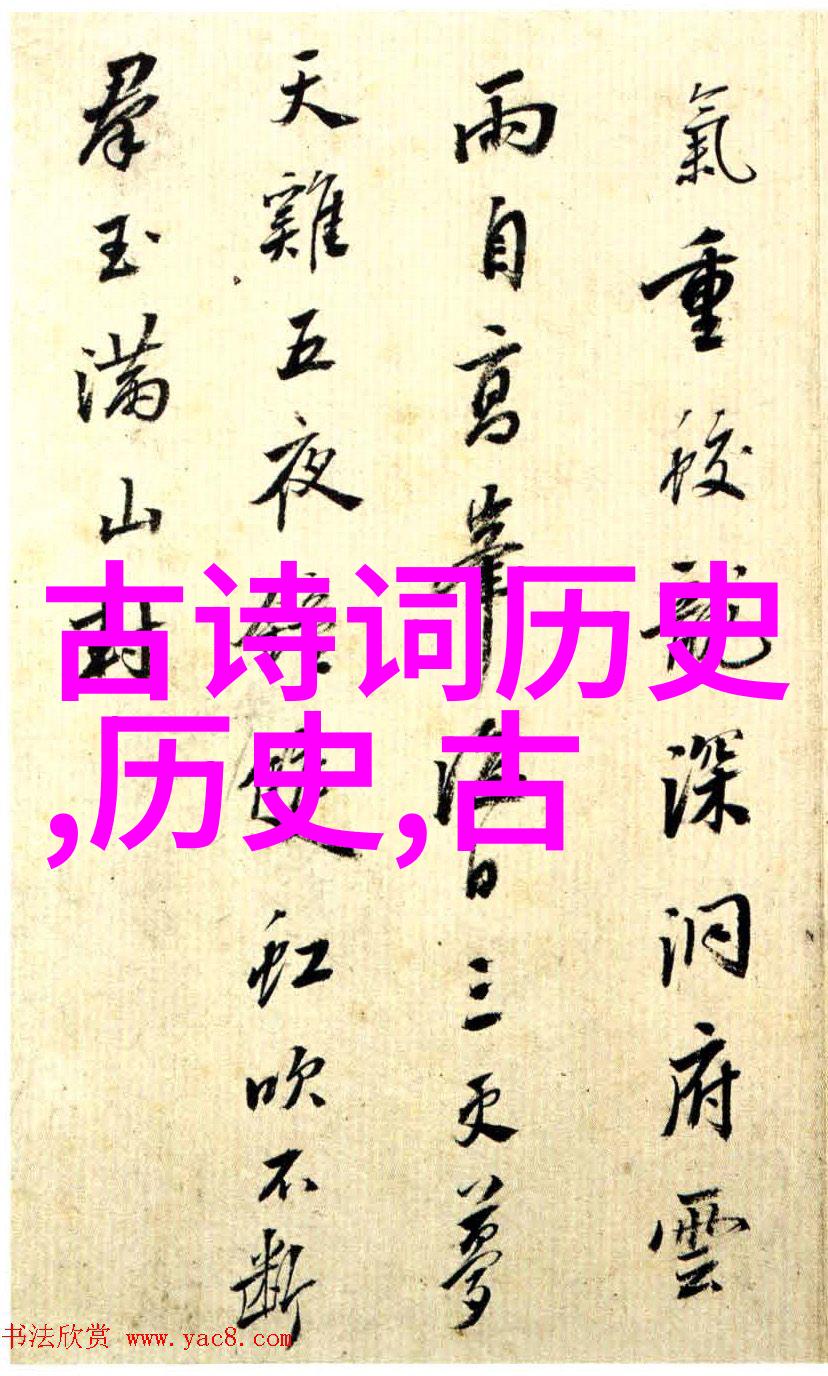 氣重蛟龍深洞府雲
雨自高峯海日三更夢
天雞五夜虹吹不斷
羣玉滿山封
古诗词历史
,历史,古
书法欣赏 www.yac8.com